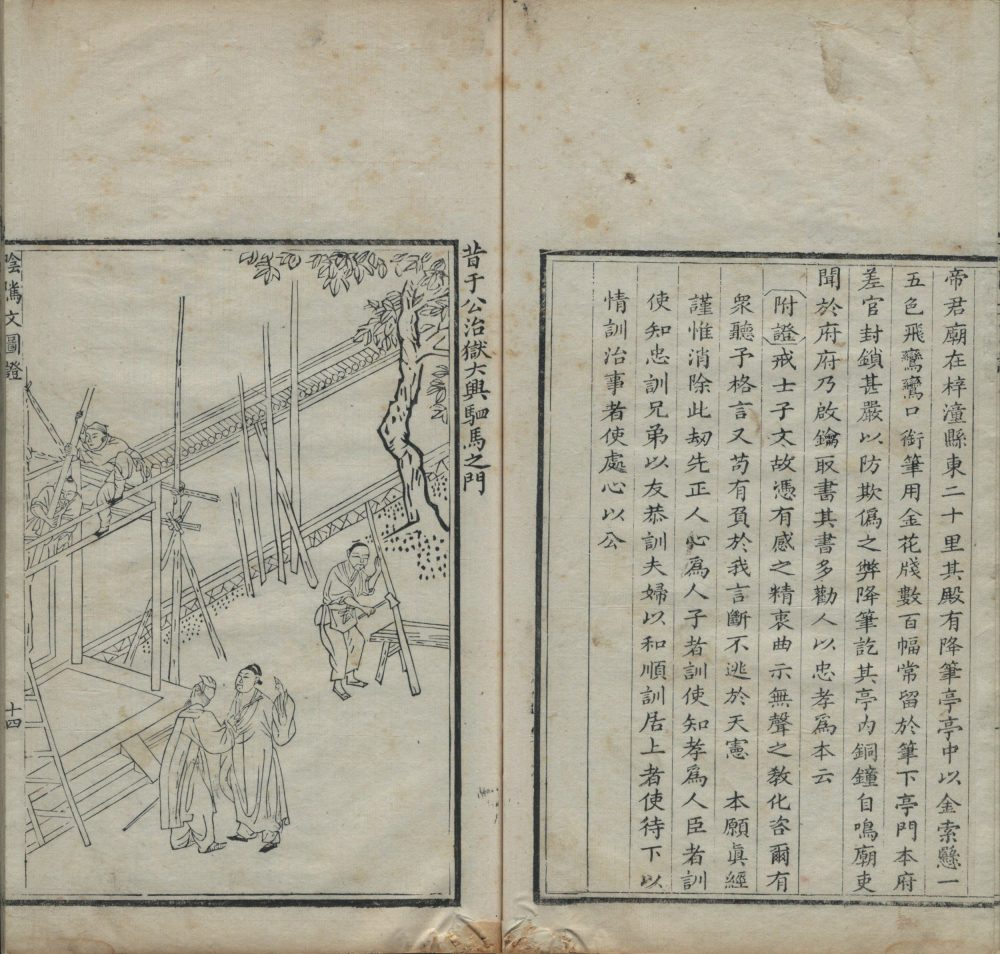 帝君廟在梓潼縣東二十里其殿有降筆亭亭中以金索懸一
五色飛鸞鸞口銜筆用金花牋數百幅常留於筆下亭門本府
差官封鎖甚嚴以防欺偽之弊降筆訖其亭內銅鐘自鳴廟吏
聞於府府乃啟鑰取書其書多勸人以忠孝爲本云
附證戒士子文故憑有感之精衷曲示無聲之教化咨爾有
衆聽予格言又苟有負於我言斷不逃於天憲 本願眞經
謹惟消除此劫先正人心爲人子者訓使知孝爲人臣者訓
使知忠訓兄弟以友恭訓夫婦以和順訓居上者使待下以
情訓治事者使處心以公
昔于公治獄大興駟馬之門
陰騭文圖證
十四